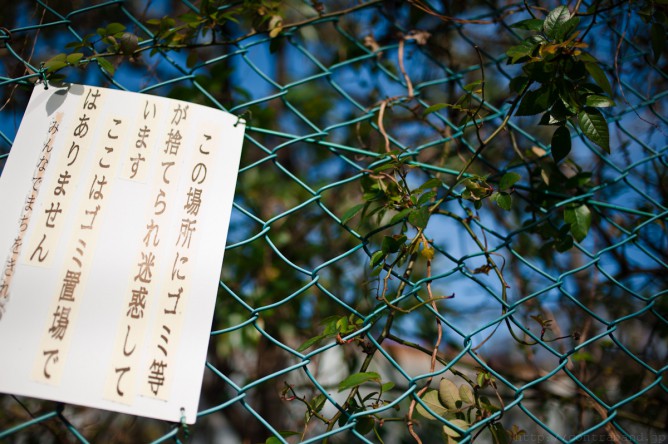 この場所にゴミ等
が捨てられ迷惑して
います
ここはゴミ置場で
はありません
みんなでまちをきれ